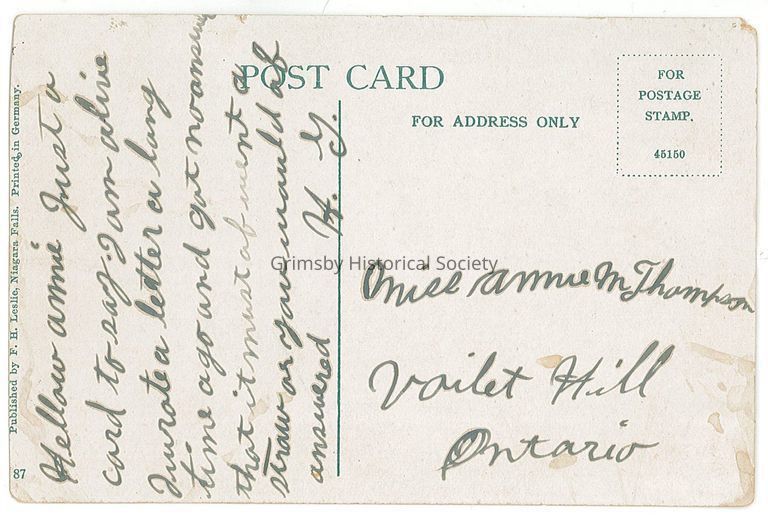 Hellow annie Just a
card to say I am alive
I wrote a letter a long
time ago and got no answer
that it must of went a
straw or you would of
answered H. G.
POST CARD
FOR ADDRESS ONLY
FOR
POSTAGE
STAMP.
45150
Miss annie M Thompson
Voilet Hill
Ontario
Published by F. H. Leslie, Niagara Falls. Printed in Germany.
87
Grimsby Historical Society